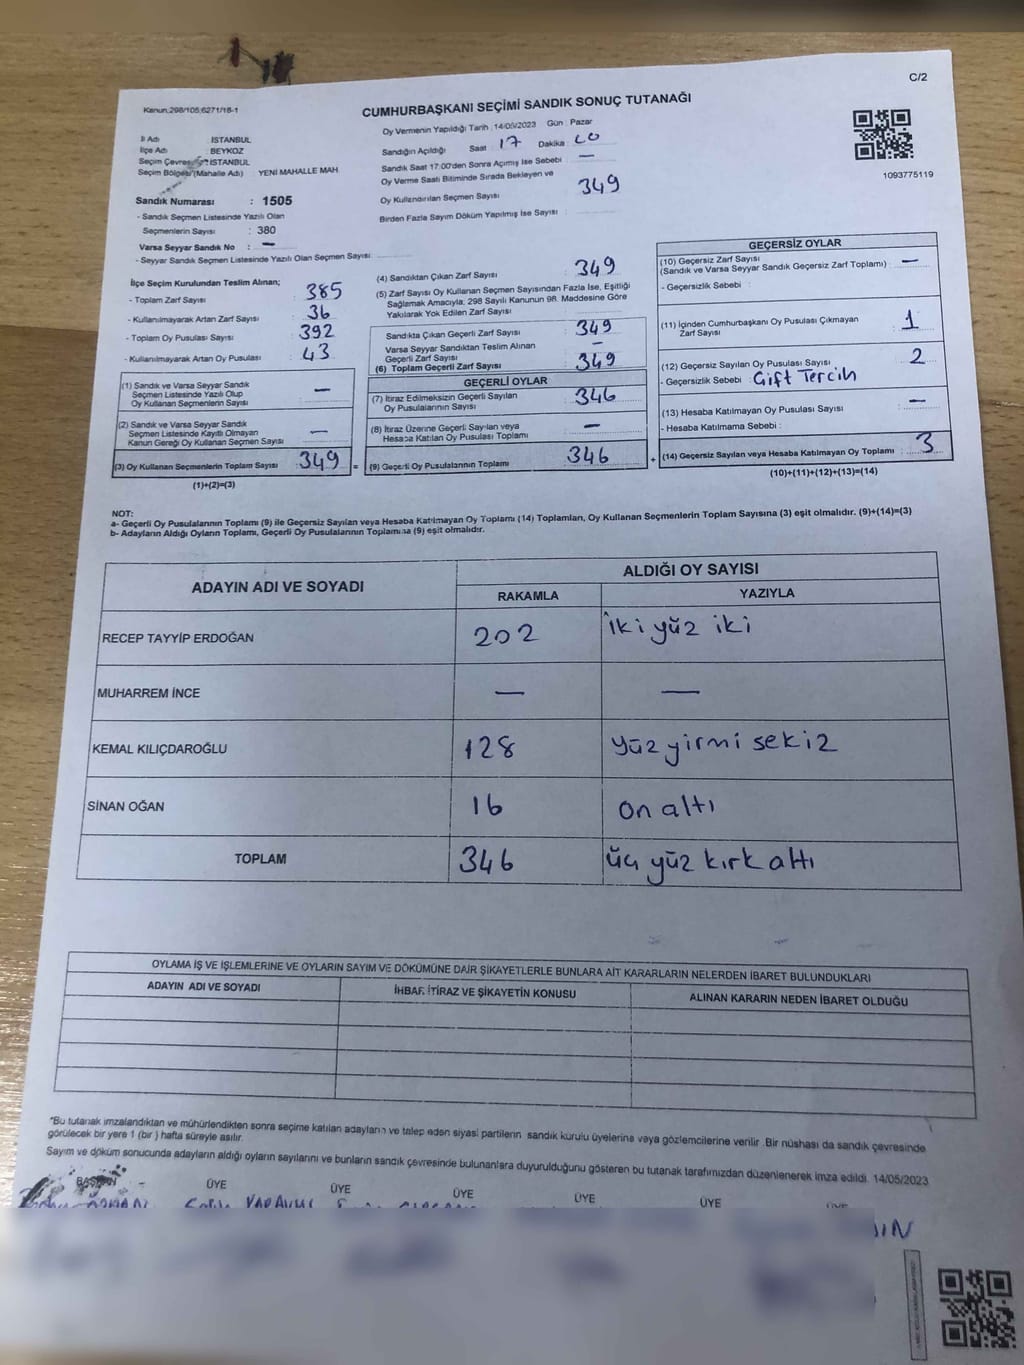 C/2
Kanun:298/105;6271/16-1
CUMHURBAŞKANI SEÇİMİ SANDIK SONUÇ TUTANAĞI
İl Adı : İSTANBUL
İlçe Adı : BEYKOZ
Seçim Çevresi : İSTANBUL
Seçim Bölgesi (Mahalle Adı) : YENİ MAHALLE MAH
Sandık Numarası : 1505
- Sandık Seçmen Listesinde Yazılı Olan
Seçmenlerin Sayısı : 380
Varsa Seyyar Sandık No : —
- Seyyar Sandık Seçmen Listesinde Yazılı Olan Seçmen Sayısı
Oy Vermenin Yapıldığı Tarih : 14/05/2023 Gün : Pazar
Sandığın Açıldığı Saat : 17 Dakika :
Sandık Saat 17:00'den Sonra Açmış İse Sebebi —
Oy Verme Saati Bitiminde Sırada Bekleyen ve
Oy Kullandırılan Seçmen Sayısı 349
Birden Fazla Sayım Döküm Yapılmış İse Sayısı :
1093775119
İlçe Seçim Kurulundan Teslim Alınan;
- Toplam Zarf Sayısı : 385
- Kullanılmayarak Artan Zarf Sayısı : 36
- Toplam Oy Pusulası Sayısı : 392
- Kullanılmayarak Artan Oy Pusulası : 43
(1) Sandık ve Varsa Seyyar Sandık
Seçmen Listesinde Yazılı Olup
Oy Kullanan Seçmenlerin Sayısı —
(2) Sandık ve Varsa Seyyar Sandık
Seçmen Listesinde Kayıtlı Olmayan
Kanun Gereği Oy Kullanan Seçmen Sayısı —
(3) Oy Kullanan Seçmenlerin Toplam Sayısı : 349 =
(1)+(2)=(3)
(4) Sandıktan Çıkan Zarf Sayısı : 349
(5) Zarf Sayısı Oy Kullanan Seçmen Sayısından Fazla İse, Eşitliği
Sağlamak Amacıyla; 298 Sayılı Kanunun 98. Maddesine Göre
Yakılarak Yok Edilen Zarf Sayısı :
Sandıkta Çıkan Geçerli Zarf Sayısı : 349
Varsa Seyyar Sandıktan Teslim Alınan
Geçerli Zarf Sayısı —
(6) Toplam Geçerli Zarf Sayısı : 349
GEÇERLİ OYLAR
(7) İtiraz Edilmeksizin Geçerli Sayılan
Oy Pusulalarının Sayısı : 346
(8) İtiraz Üzerine Geçerli Sayılan veya
Hesaba Katılan Oy Pusulası Toplamı —
(9) Geçerli Oy Pusulalarının Toplamı : 346 +
GEÇERSİZ OYLAR
(10) Geçersiz Zarf Sayısı
(Sandık ve Varsa Seyyar Sandık Geçersiz Zarf Toplamı) : —
- Geçersizlik Sebebi :
(11) İçinden Cumhurbaşkanı Oy Pusulası Çıkmayan
Zarf Sayısı : 1
(12) Geçersiz Sayılan Oy Pusulası Sayısı : 2
- Geçersizlik Sebebi : Çift Tercih
(13) Hesaba Katılmayan Oy Pusulası Sayısı : —
- Hesaba Katılmama Sebebi :
(14) Geçersiz Sayılan veya Hesaba Katılmayan Oy Toplamı : 3
(10)+(11)+(12)+(13)=(14)
NOT:
a- Geçerli Oy Pusulalarının Toplamı (9) ile Geçersiz Sayılan veya Hesaba Katılmayan Oy Toplamı (14) Toplamları, Oy Kullanan Seçmenlerin Toplam Sayısına (3) eşit olmalıdır. (9)+(14)=(3)
b- Adayların Aldığı Oyların Toplamı, Geçerli Oy Pusulalarının Toplamına (9) eşit olmalıdır.
ADAYIN ADI VE SOYADI
ALDIĞI OY SAYISI
RAKAMLA YAZIYLA
RECEP TAYYİP ERDOĞAN 202 İki yüz iki
MUHARREM İNCE — —
KEMAL KILIÇDAROĞLU 128 yüz yirmi sekiz
SİNAN OĞAN 16 on altı
TOPLAM 346 üç yüz kırk altı
OYLAMA İŞ VE İŞLEMLERİNE VE OYLARIN SAYIM VE DÖKÜMÜNE DAİR ŞİKAYETLERLE BUNLARA AİT KARARLARIN NELERDEN İBARET BULUNDUKLARI
ADAYIN ADI VE SOYADI İHBAR, İTİRAZ VE ŞİKAYETİN KONUSU ALINAN KARARIN NEDEN İBARET OLDUĞU
*Bu tutanak imzalandıktan ve mühürlendikten sonra seçime katılan adayların ve talep eden siyasi partilerin sandık kurulu üyelerine veya gözlemcilerine verilir. Bir nüshası da sandık çevresinde
görülecek bir yere 1 (bir) hafta süreyle asılır.
Sayım ve döküm sonucunda adayların aldığı oyların sayılarını ve bunların sandık çevresinde bulunanlara duyurulduğunu gösteren bu tutanak tarafımızdan düzenlenerek imza edildi. 14/05/2023
BAŞKAN ÜYE ÜYE ÜYE ÜYE ÜYE ÜYE